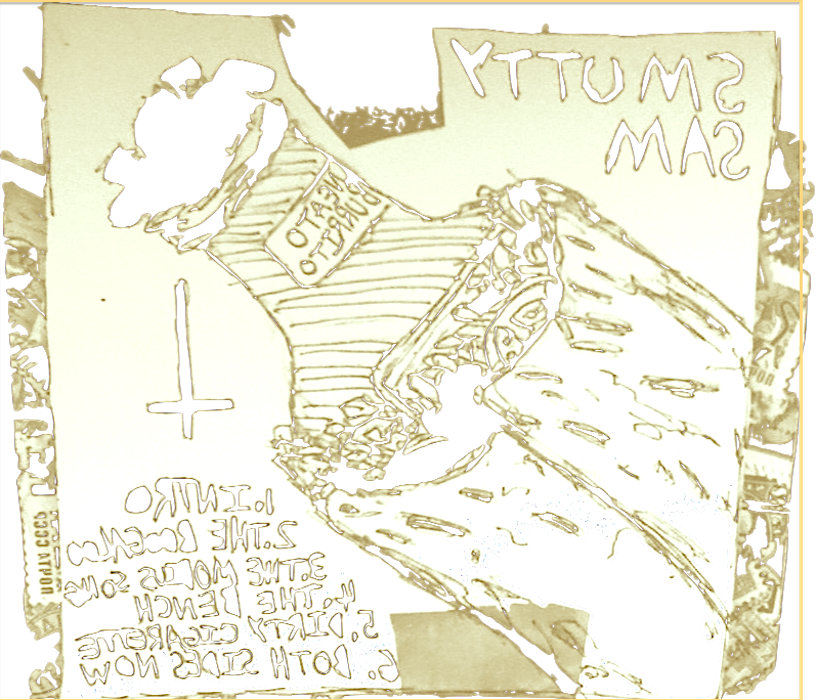 SMUTTY
SAM
NEATO
BURRITO
1. INTRO
2. THE
3. THE SONG
4. THE BENCH
5. DIRTY CIGARETTE
6. BOTH SIDES NOW
ПОЧТА СССР